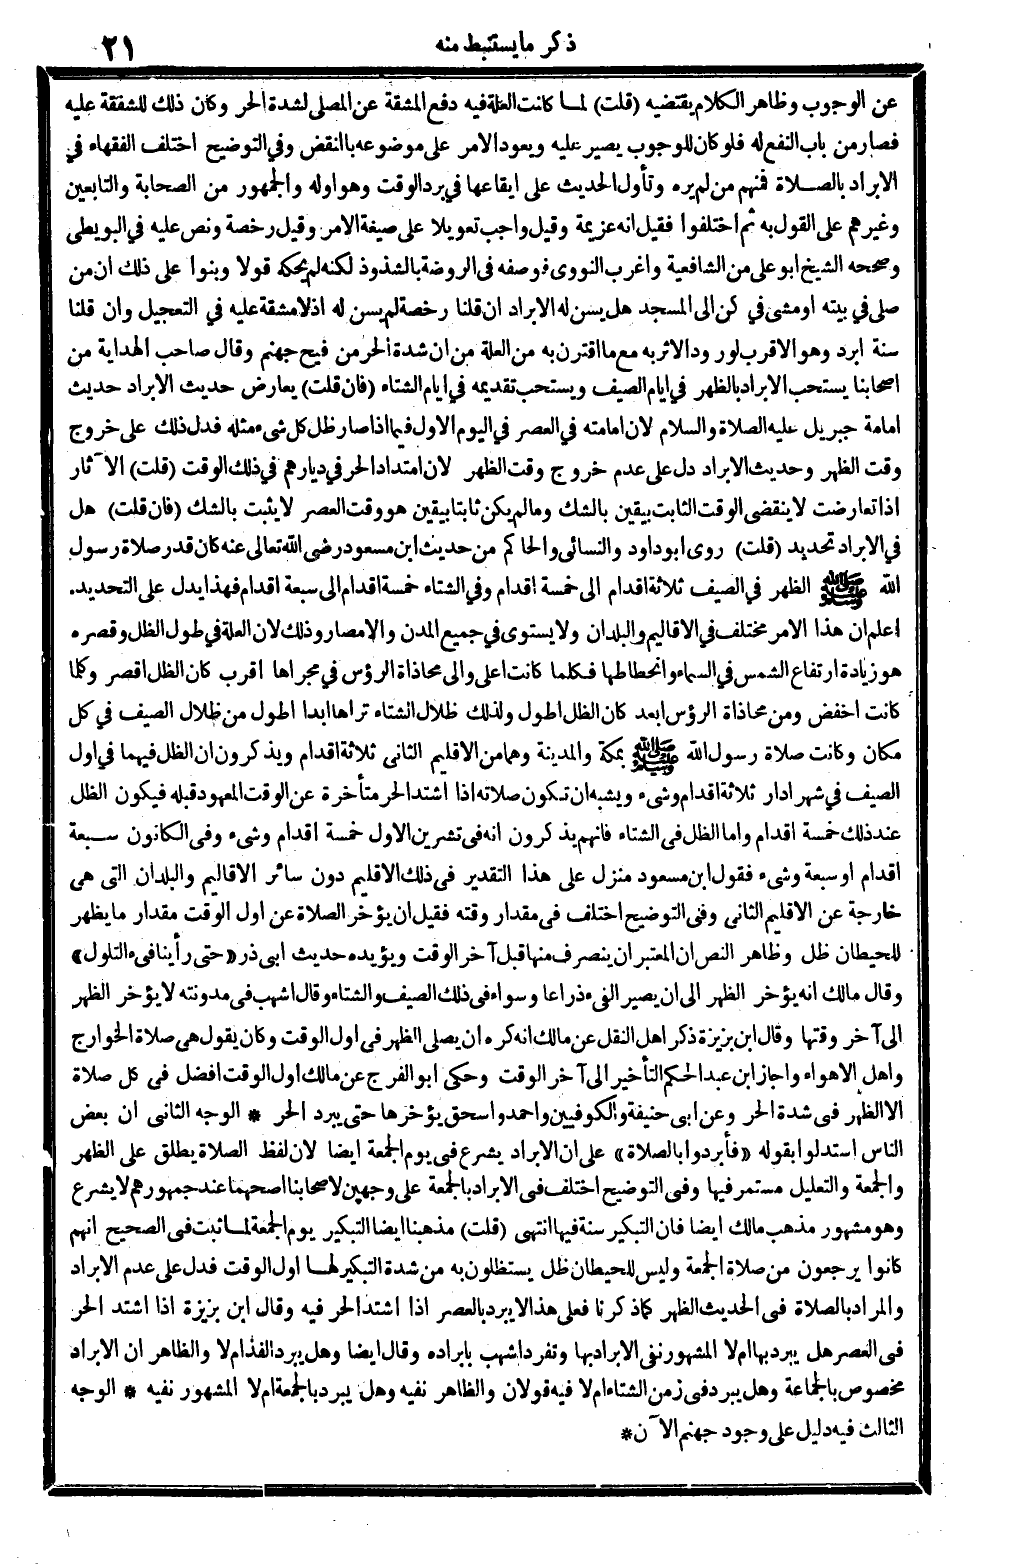 ذكر ما يستنبط منه ٢١
عن الوجوب وظاهر الكلام يقتضيه (قلت) لما كانت العلة فيه دفع المشقة عن المصلى لشدة الحر وكان ذلك للشفقة عليه
فصار من باب النفع له فلو كان للوجوب يصير عليه ويعود الامر على موضوعه بالنقض وفي التوضيح اختلف الفقهاء في
الابراد بالصلاة فمنهم من لم يره وتأول الحديث على ايقاعها في برد الوقت وهو اوله والجمهور من الصحابة والتابعين
وغيرهم على القول به ثم اختلفوا فقيل انه عزيمة وقيل واجب تعويلا على صيغة الامر وقيل رخصة ونص عليه في البويطى
وصححه الشيخ ابو على من الشافعية واغرب النووى فوصفه فى الروضة بالشذوذ لكنه لم يحكه قولا وبنوا على ذلك ان من
صلى في بيته او مشى في كن الى المسجد هل يسن له الابراد ان قلنا رخصة لم يسن له اذ لا مشقة عليه في التعجيل وان قلنا
سنة ابرد وهو الاقرب لورود الاثر به مع ما اقترن به من العلة من ان شدة الحر من فيح جهنم وقال صاحب الهداية من
اصحابنا يستحب الابراد بالظهر في ايام الصيف ويستحب تقديمه في ايام الشتاء (فان قلت) يعارض حديث الابراد حديث
امامة جبريل عليه الصلاة والسلام لان امامته في العصر في اليوم الاول فيما اذا صار ظل كل شىء مثله فدل ذلك على خروج
وقت الظهر وحديث الابراد دل على عدم خروج وقت الظهر لان امتداد الحر في ديارهم في ذلك الوقت (قلت) الآثار
اذا تعارضت لا ينقضى الوقت الثابت بيقين بالشك وما لم يكن ثابتا بيقين هو وقت العصر لا يثبت بالشك (فان قلت) هل
في الابراد تحديد (قلت) روى ابو داود والنسائى والحاكم من حديث ابن مسعود رضى الله تعالى عنه كان قدر صلاة رسول
الله ﷺ الظهر في الصيف ثلاثة اقدام الى خمسة اقدام وفي الشتاء خمسة اقدام الى سبعة اقدام فهذا يدل على التحديد.
اعلم ان هذا الامر مختلف في الاقاليم والبلدان ولا يستوى في جميع المدن والامصار وذلك لان العلة في طول الظل وقصره
هو زيادة ارتفاع الشمس في السماء وانحطاطها فكلما كانت اعلى والى محاذاة الرؤس في مجراها اقرب كان الظل اقصر وكلما
كانت اخفض ومن محاذاة الرؤس ابعد كان الظل اطول ولذلك ظلال الشتاء تراها ابدا اطول من ظلال الصيف في كل
مكان وكانت صلاة رسول الله ﷺ بمكة والمدينة وهما من الاقليم الثانى ثلاثة اقدام ويذكرون ان الظل فيهما في اول
الصيف في شهر ادار ثلاثة اقدام وشىء ويشبه ان تكون صلاته اذا اشتد الحر متأخرة عن الوقت المعهود قبله فيكون الظل
عند ذلك خمسة اقدام واما الظل فى الشتاء فانهم يذكرون انه فى تشرين الاول خمسة اقدام وشىء وفى الكانون سبعة
اقدام او سبعة وشىء فقول ابن مسعود منزل على هذا التقدير فى ذلك الاقليم دون سائر الاقاليم والبلدان التى هى
خارجة عن الاقليم الثانى وفى التوضيح اختلف فى مقدار وقته فقيل ان يؤخر الصلاة عن اول الوقت مقدار ما يظهر
للحيطان ظل وظاهر النص ان المعتبر ان ينصرف منها قبل آخر الوقت ويؤيده حديث ابى ذر «حتى رأينا فىء التلول»
وقال مالك انه يؤخر الظهر الى ان يصير الفىء ذراعا وسواء فى ذلك الصيف والشتاء وقال اشهب فى مدونته لا يؤخر الظهر
الى آخر وقتها وقال ابن بزيزة ذكر اهل النقل عن مالك انه كره ان يصلى الظهر فى اول الوقت وكان يقول هى صلاة الخوارج
واهل الاهواء واجاز ابن عبد الحكم التأخير الى آخر الوقت وحكى ابو الفرج عن مالك اول الوقت افضل فى كل صلاة
الا الظهر فى شدة الحر وعن ابى حنيفة والكوفيين واحمد واسحق يؤخرها حتى يبرد الحر * الوجه الثانى ان بعض
الناس استدلوا بقوله «فأبردوا بالصلاة» على ان الابراد يشرع فى يوم الجمعة ايضا لان لفظ الصلاة يطلق على الظهر
والجمعة والتعليل مستمر فيها وفى التوضيح اختلف فى الابراد بالجمعة على وجهين لاصحابنا اصحهما عند جمهورهم لا يشرع
وهو مشهور مذهب مالك ايضا فان التبكير سنة فيها انتهى (قلت) مذهبنا ايضا التبكير يوم الجمعة لما ثبت فى الصحيح انهم
كانوا يرجعون من صلاة الجمعة وليس للحيطان ظل يستظلون به من شدة التبكير لها اول الوقت فدل على عدم الابراد
والمراد بالصلاة فى الحديث الظهر كما ذكرنا فعلى هذا لا يبرد بالعصر اذا اشتد الحر فيه وقال ابن بزيزة اذا اشتد الحر
فى العصر هل يبرد بها ام لا المشهور نفى الابراد بها وتفرد اشهب بابراده وقال ايضا وهل يبرد الفذ ام لا والظاهر ان الابراد
مخصوص بالجماعة وهل يبرد فى زمن الشتاء ام لا فيه قولان والظاهر نفيه وهل يبرد بالجمعة ام لا المشهور نفيه * الوجه
الثالث فيه دليل على وجود جهنم الآن *